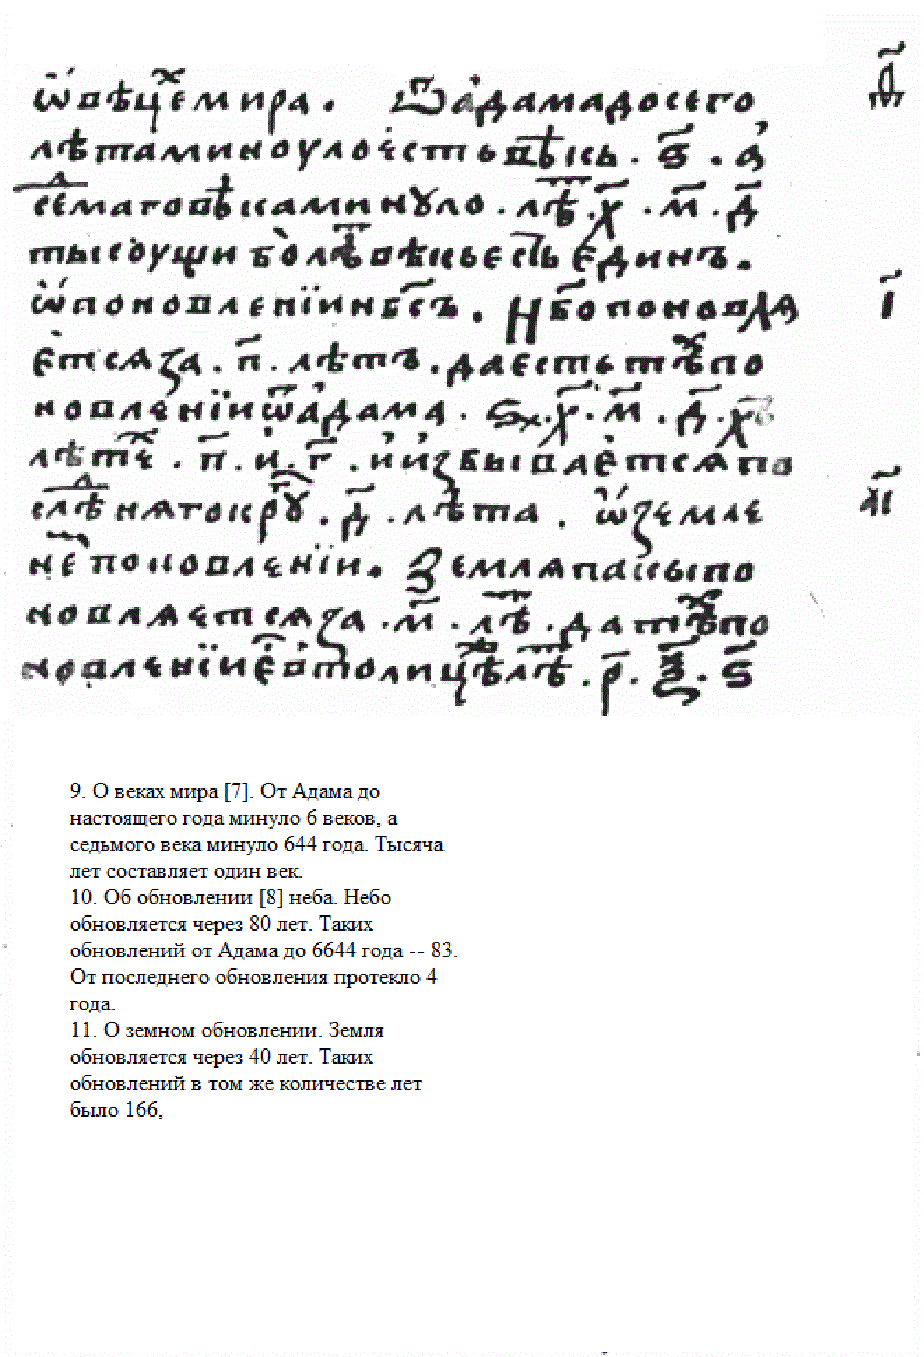 ѿ вѣцѣх мира. Ѿ адама до сего
лѣта минуло есть вѣкъ . ѕ҃ . а
семаго вѣка минуло . лѣт . х҃ . м҃ . д҃
тысоущи бо лѣт вѣкь есть единъ.
ѡ поновленїи нб҃съ . Н҃бо поновлѧ
етсѧ за . п҃ . лѣтъ . да есть тѣх по
новленїи ѿ адама . ѕ . х҃ . м҃ . д҃ . х
лѣтех . п҃ . и . г҃ . и избывает сѧ по
слѣднѧго кругу . д҃ . лѣта . ѡ земле
не поновленїи . Землѧ пакы по
новлѧет сѧ за . м҃ . лѣт . да тѣх по
новленїи е в толицѣх лѣт . р҃ . ѯ҃ . ѕ҃
І҃
АІ҃
9. О веках мира [7]. От Адама до
настоящего года минуло 6 веков, а
седьмого века минуло 644 года. Тысяча
лет составляет один век.
10. Об обновлении [8] неба. Небо
обновляется через 80 лет. Таких
обновлений от Адама до 6644 года -- 83.
От последнего обновления протекло 4
года.
11. О земном обновлении. Земля
обновляется через 40 лет. Таких
обновлений в том же количестве лет
было 166,